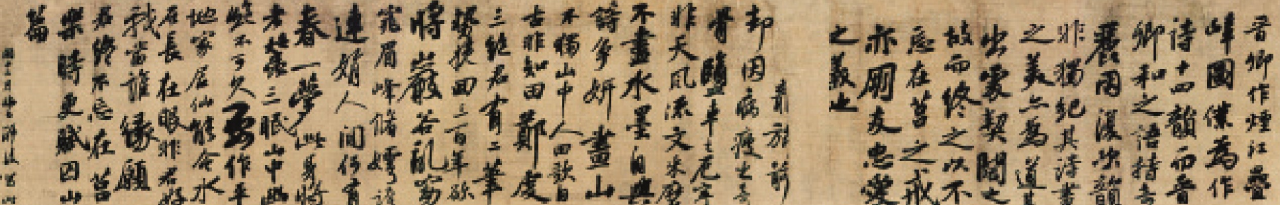 晉卿作煙江疊
嶂圖僕為作
詩十四韻而晉
卿和之語特奇
麗因復次韻
非獨紀其詩畫
之美亦為道其
出處契闊之
故而終之以不
忘在莒之戒
亦朋友忠愛
之義也
却因病瘦出奇
骨鹽車之厄寧
非天風流文采磨
不盡水墨自與
詩爭妍畫山
不獨山中人田歌自
古非知田鄭虔
三絕君有二筆
勢挽回三百年欲
將巖谷亂窈
窕眉峰修嫮誇
連娟人間何有
春一夢此身將
老蠶三眠山中幽
絕不可久要作平
地家居仙能令水
石長在眼非君好
我當誰緣願
君終不忘在莒
樂時更賦囚山
篇